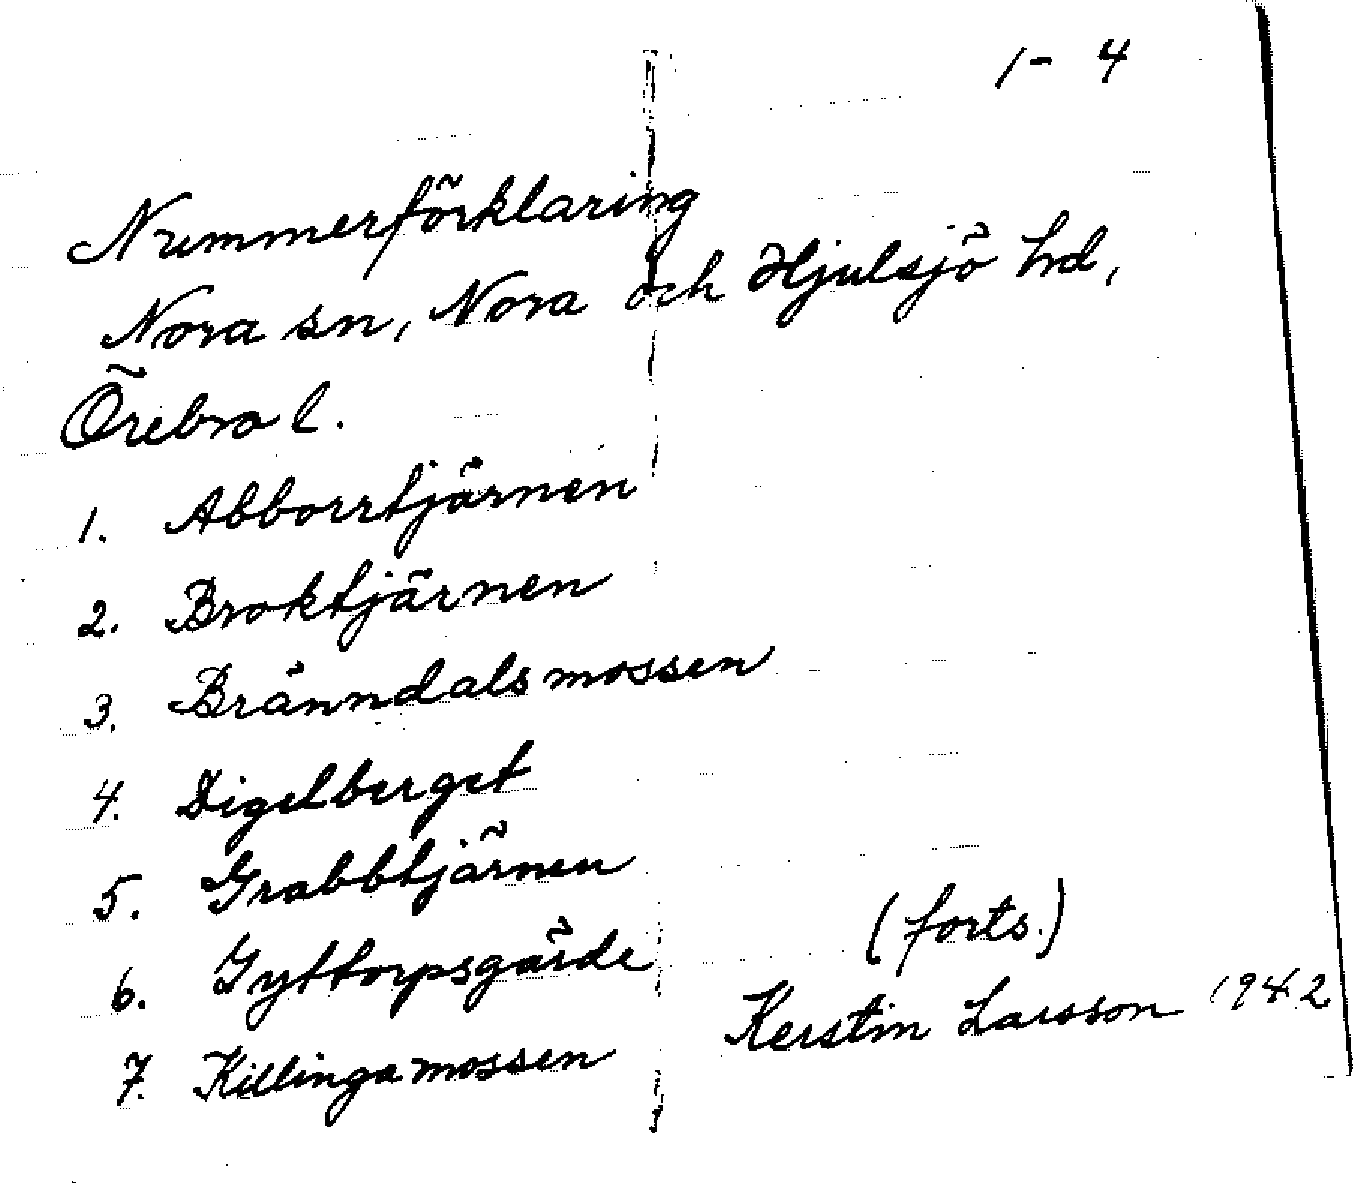 1- 4
Nummerförklaring
Nora sn, Nora och Hjulsjö hd,
Örebro l.
1. Abborrtjärnen
2. Broktjärnen
3. Bränndalsmossen
4. Digelberget
5. Grabbtjärnen
6. Gyttorpsgärde
7. Killingamossen
(forts.)
Kerstin Larsson 1942